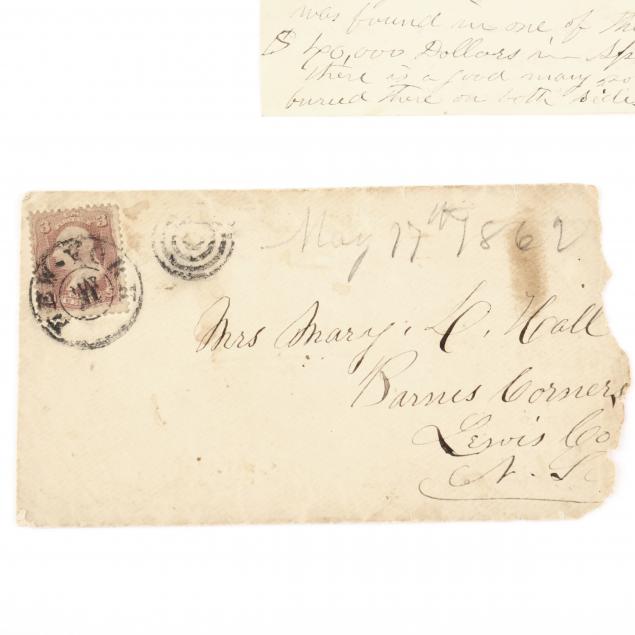 was found in one of the
$ 40,000 Dollars in Sp
there is a good many so
buried there on both sides
3 3
NEW-YORK
May 17th 1862
Mrs Mary. L. Hall
Barnes Corners
Lewis Co
N. Y